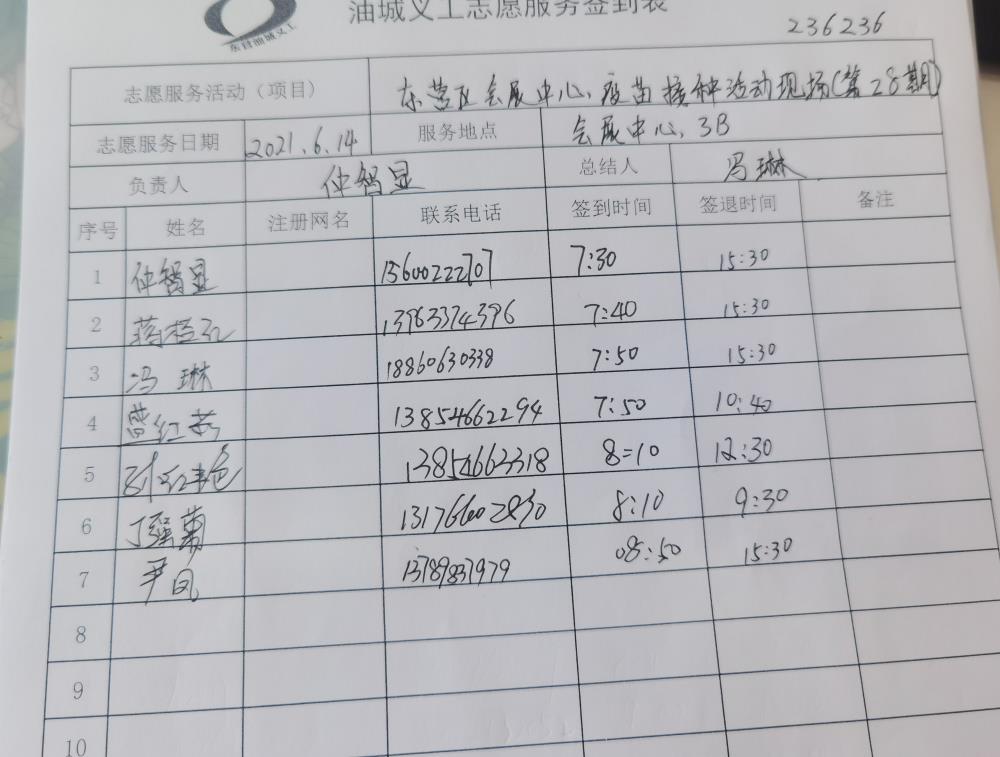 油城义工志愿服务签到表
东营油城义工
236236
志愿服务活动（项目） 东营区会展中心、疫苗接种活动现场(第28期)
志愿服务日期 2021.6.14 服务地点 会展中心、3B
负责人 仲智显 总结人 冯琳
序号 姓名 注册网名 联系电话 签到时间 签退时间 备注
1 仲智显 15600222707 7:30 15:30
2 7:40 15:30
3 冯琳 18860630338 7:50 15:30
4 13854662294 7:50 10:40
5 13854663318 8=10 12:30
6 8:10 9:30
7 尹凤 13789837979 08:50 15:30
8
9
10